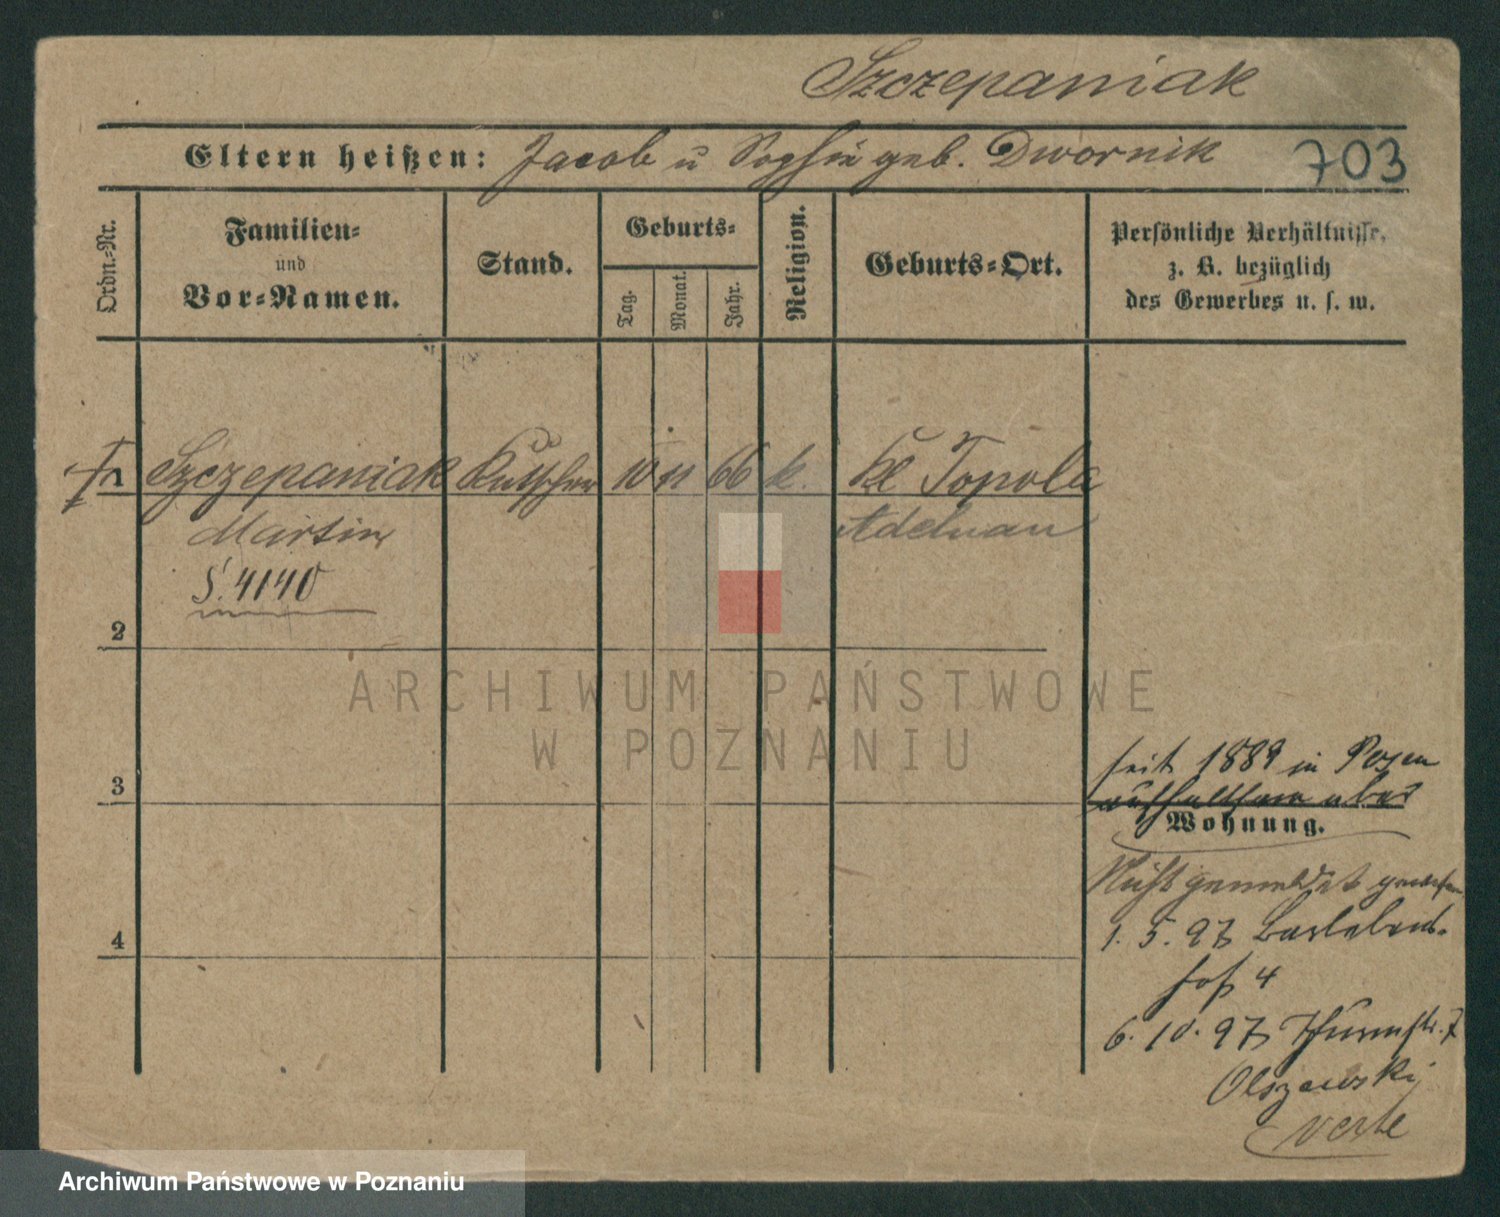 Szczepaniak
Eltern heißen: Jacob u Sophie geb. Dwornik 703
Ordn.-Nr.
Familien- und Vor-Namen.
Stand.
Geburts-
Tag.
Monat.
Jahr.
Religion.
Geburts-Ort.
Persönliche Verhältnisse,
z. B. bezüglich
des Gewerbes u. s. w.
1 Szczepaniak Kutscher 10 11 66 k. Kl Topola
Martin Adelnau
S. 4140
2
3
4
seit 1889 in Posen
aufhaltsam aber
Wohnung.
Nicht gemeldet gewesen
1. 5. 97 Barlebens-
hof 4
6. 10. 97 Thurmstr. 7
Olszewski
verte
ARCHIWUM PAŃSTWOWE
W POZNANIU
Archiwum Państwowe w Poznaniu